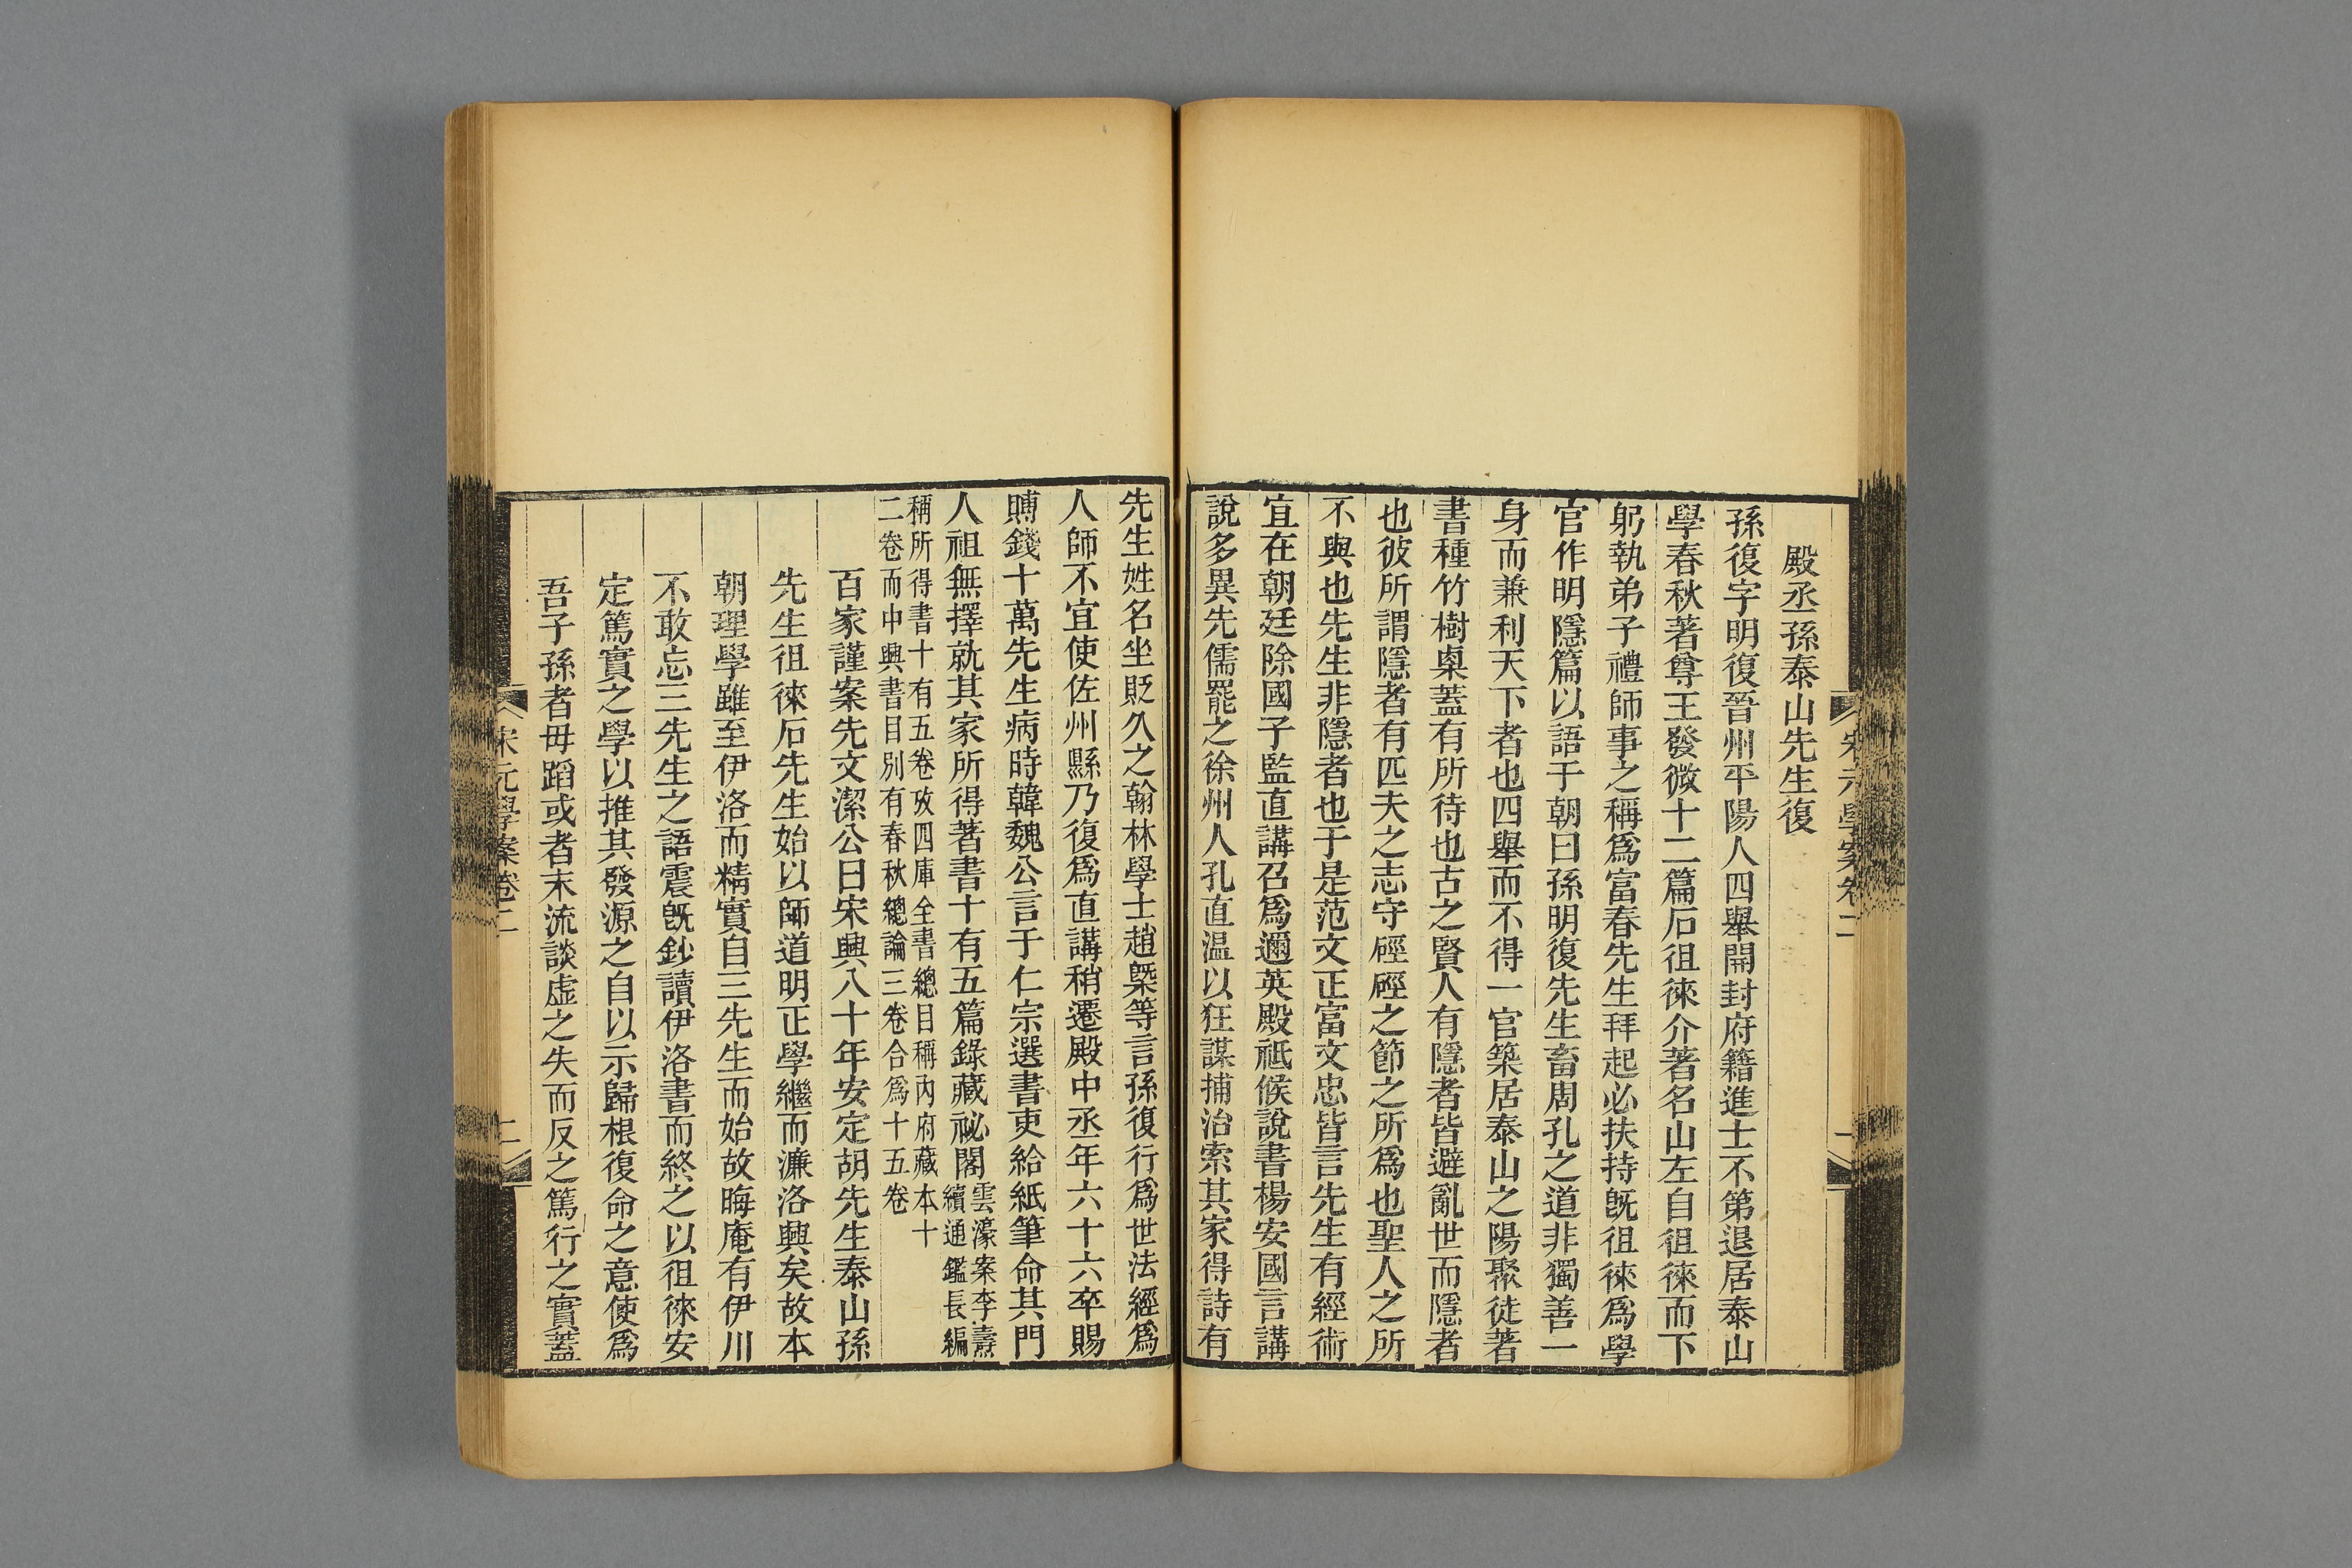 殿丞孫泰山先生復
孫復字明復晉州平陽人四舉開封府籍進士不第退居泰山
學春秋著尊王發微十二篇石徂徠介著名山左自徂徠而下
躬執弟子禮師事之稱爲富春先生拜起必扶持旣徂徠爲學
官作明隱篇以語于朝曰孫明復先生畜周孔之道非獨善一
身而兼利天下者也四舉而不得一官築居泰山之陽聚徒著
書種竹樹桌蓋有所待也古之賢人有隱者皆避亂世而隱者
也彼所謂隱者有匹夫之志守硜硜之節之所爲也聖人之所
不與也先生非隱者也于是范文正富文忠皆言先生有經術
宜在朝廷除國子監直講召爲邇英殿祗候說書楊安國言講
說多異先儒罷之徐州人孔直温以狂謀捕治索其家得詩有
先生姓名坐貶久之翰林學士趙槩等言孫復行爲世法經爲
人師不宜使佐州縣乃復爲直講稍遷殿中丞年六十六卒賜
賻錢十萬先生病時韓魏公言于仁宗選書吏給紙筆命其門
人祖無擇就其家所得著書十有五篇錄藏祕閣雲濠案李燾
續通鑑長編
稱所得書十有五卷攷四庫全書總目稱內府藏本十
二卷而中興書目別有春秋總論三卷合爲十五卷
百家謹案先文潔公曰宋興八十年安定胡先生泰山孫
先生徂徠石先生始以師道明正學繼而濂洛興矣故本
朝理學雖至伊洛而精實自三先生而始故晦庵有伊川
不敢忘三先生之語震旣鈔讀伊洛書而終之以徂徠安
定篤實之學以推其發源之自以示歸根復命之意使爲
吾子孫者毋蹈或者末流談虛之失而反之篤行之實蓋
宋元學案卷二
二